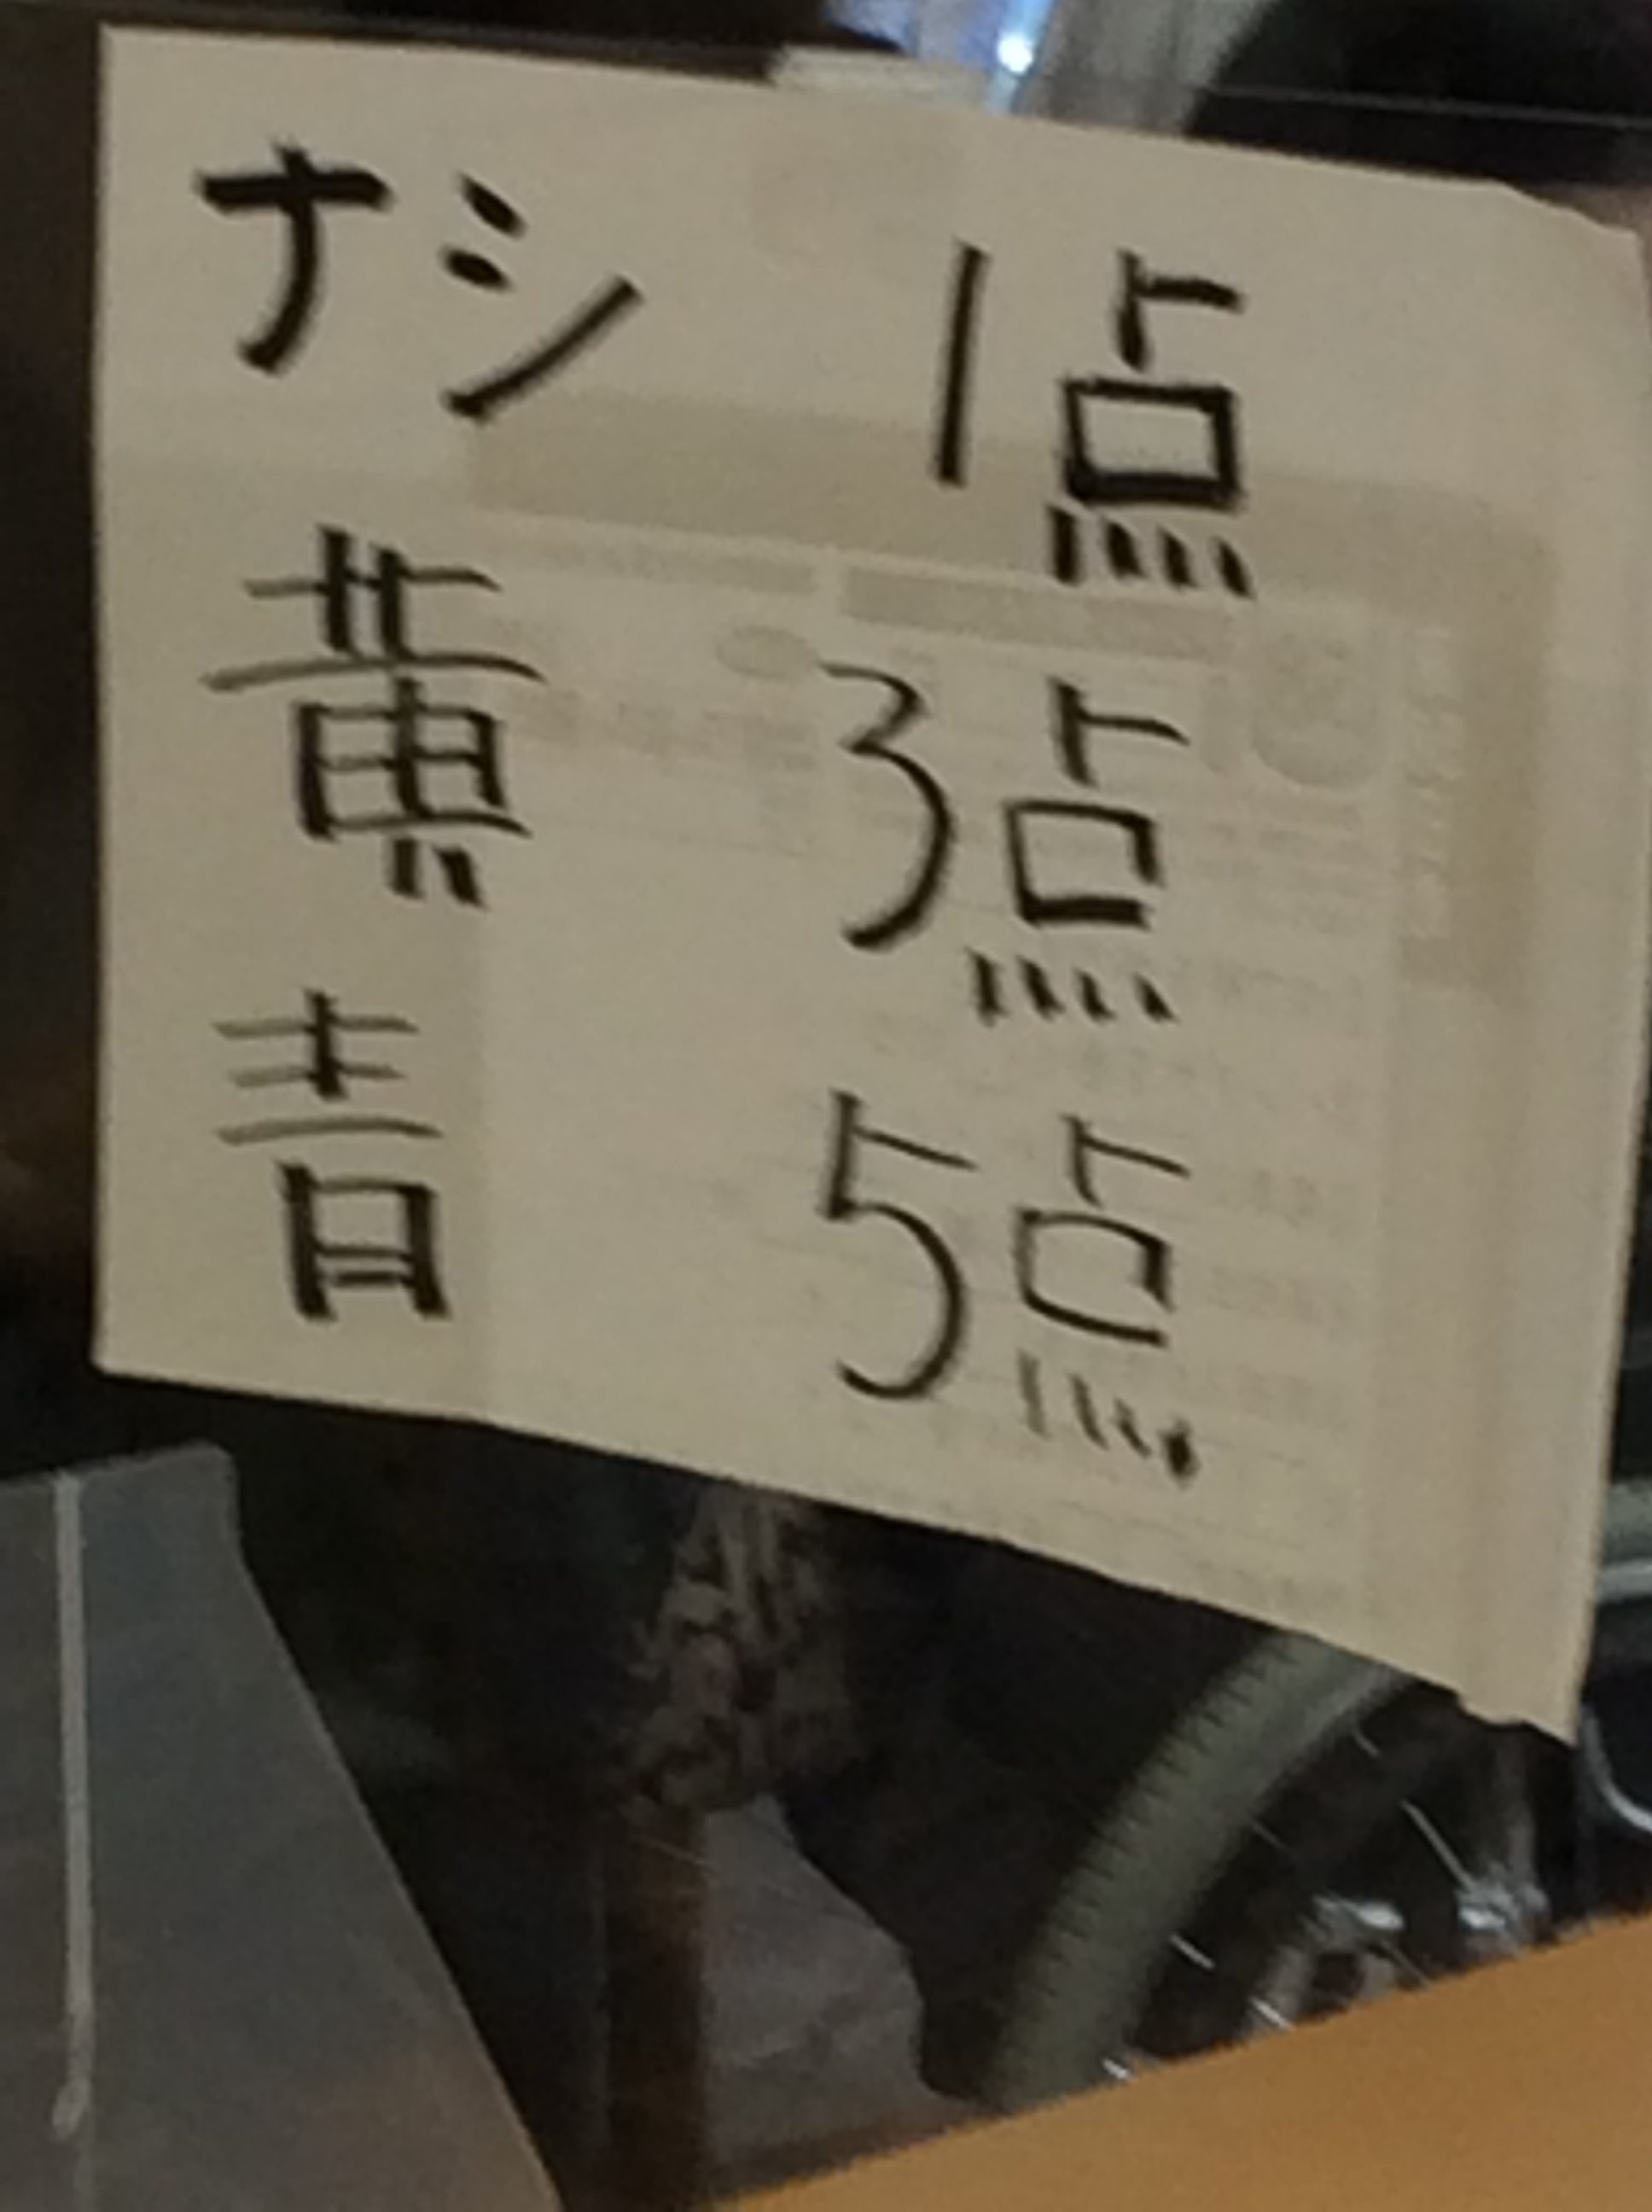 ナシ 1点
黄 3点
青 5点